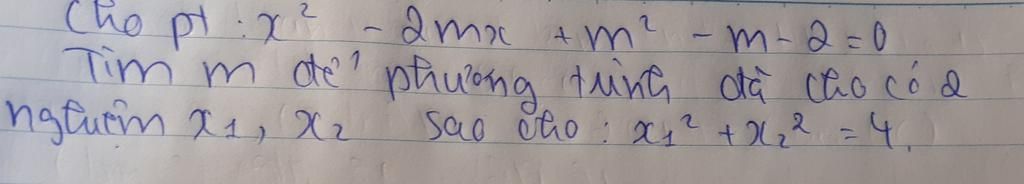 Cho pt : x² - 2mx + m² - m - 2 = 0
Tìm m để phương trình đã cho có 2
nghiệm x₁, x₂ sao cho : x₁² + x₂² = 4.